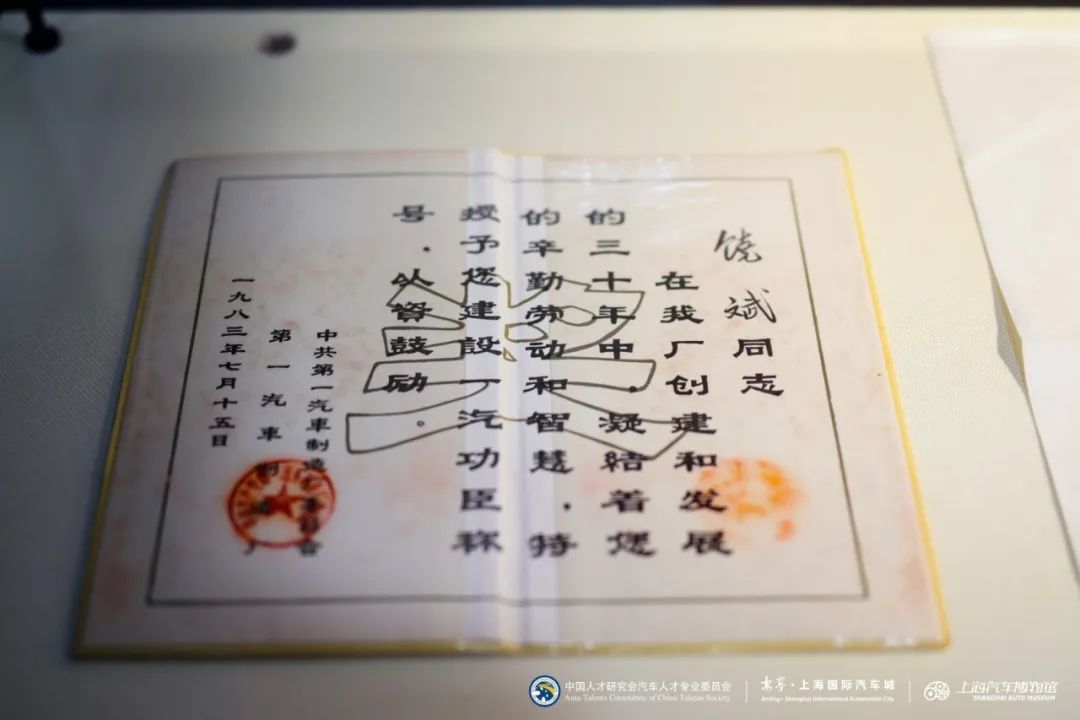 饶斌同志
在我厂创建和发展
的三十年中,凝結着您
的辛勤劳动和智慧,特
授予您建設一汽功臣称
号.以資鼓励。
中共第一汽車制造厂委員会
第一汽車制造厂
一九八三年七月十五日
中国人才研究会汽车人才专业委员会
Auto Talents Committee of China Talents Society
安亭·上海国际汽车城
Anting · Shanghai International Automobile City
上海汽车博物馆
SHANGHAI AUTO MUSEUM